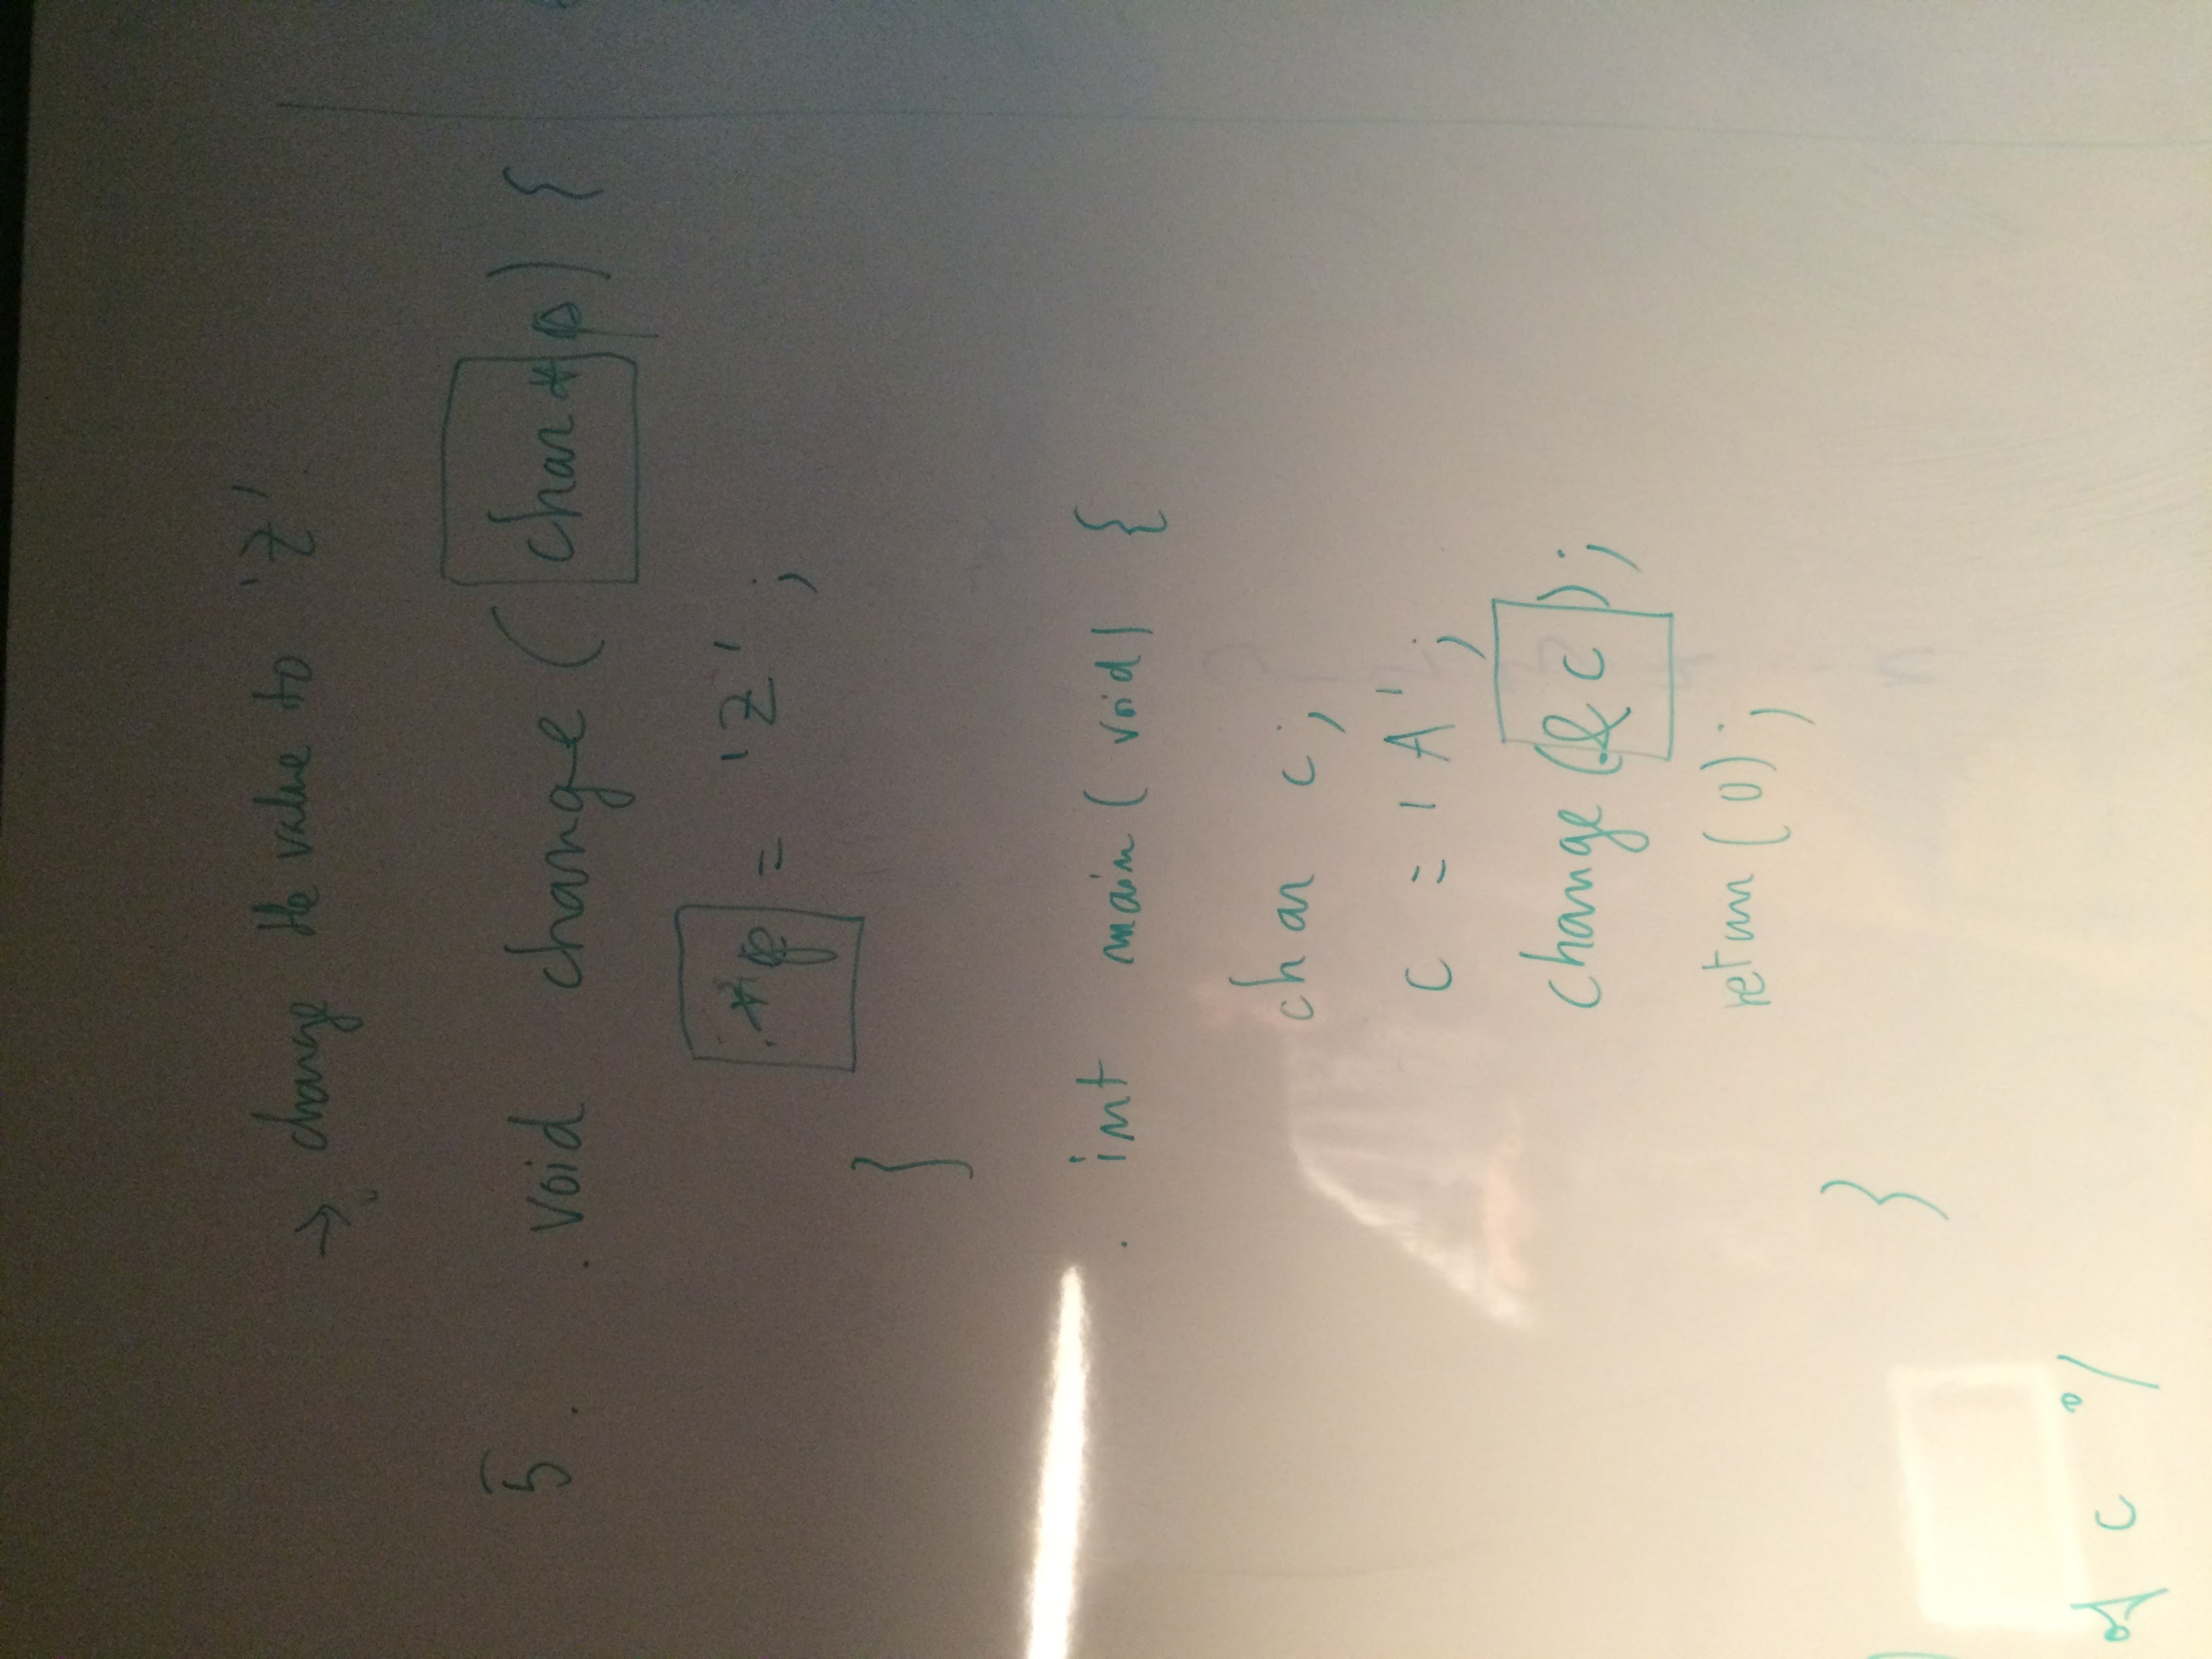 → change the value to 'Z'.
5. . void change ( char * p ) {
*p = 'Z' ;
}
. int main ( void ) {
char c ;
c = 'A' ;
change ( & c ) ;
return ( 0 ) ;
}
of c